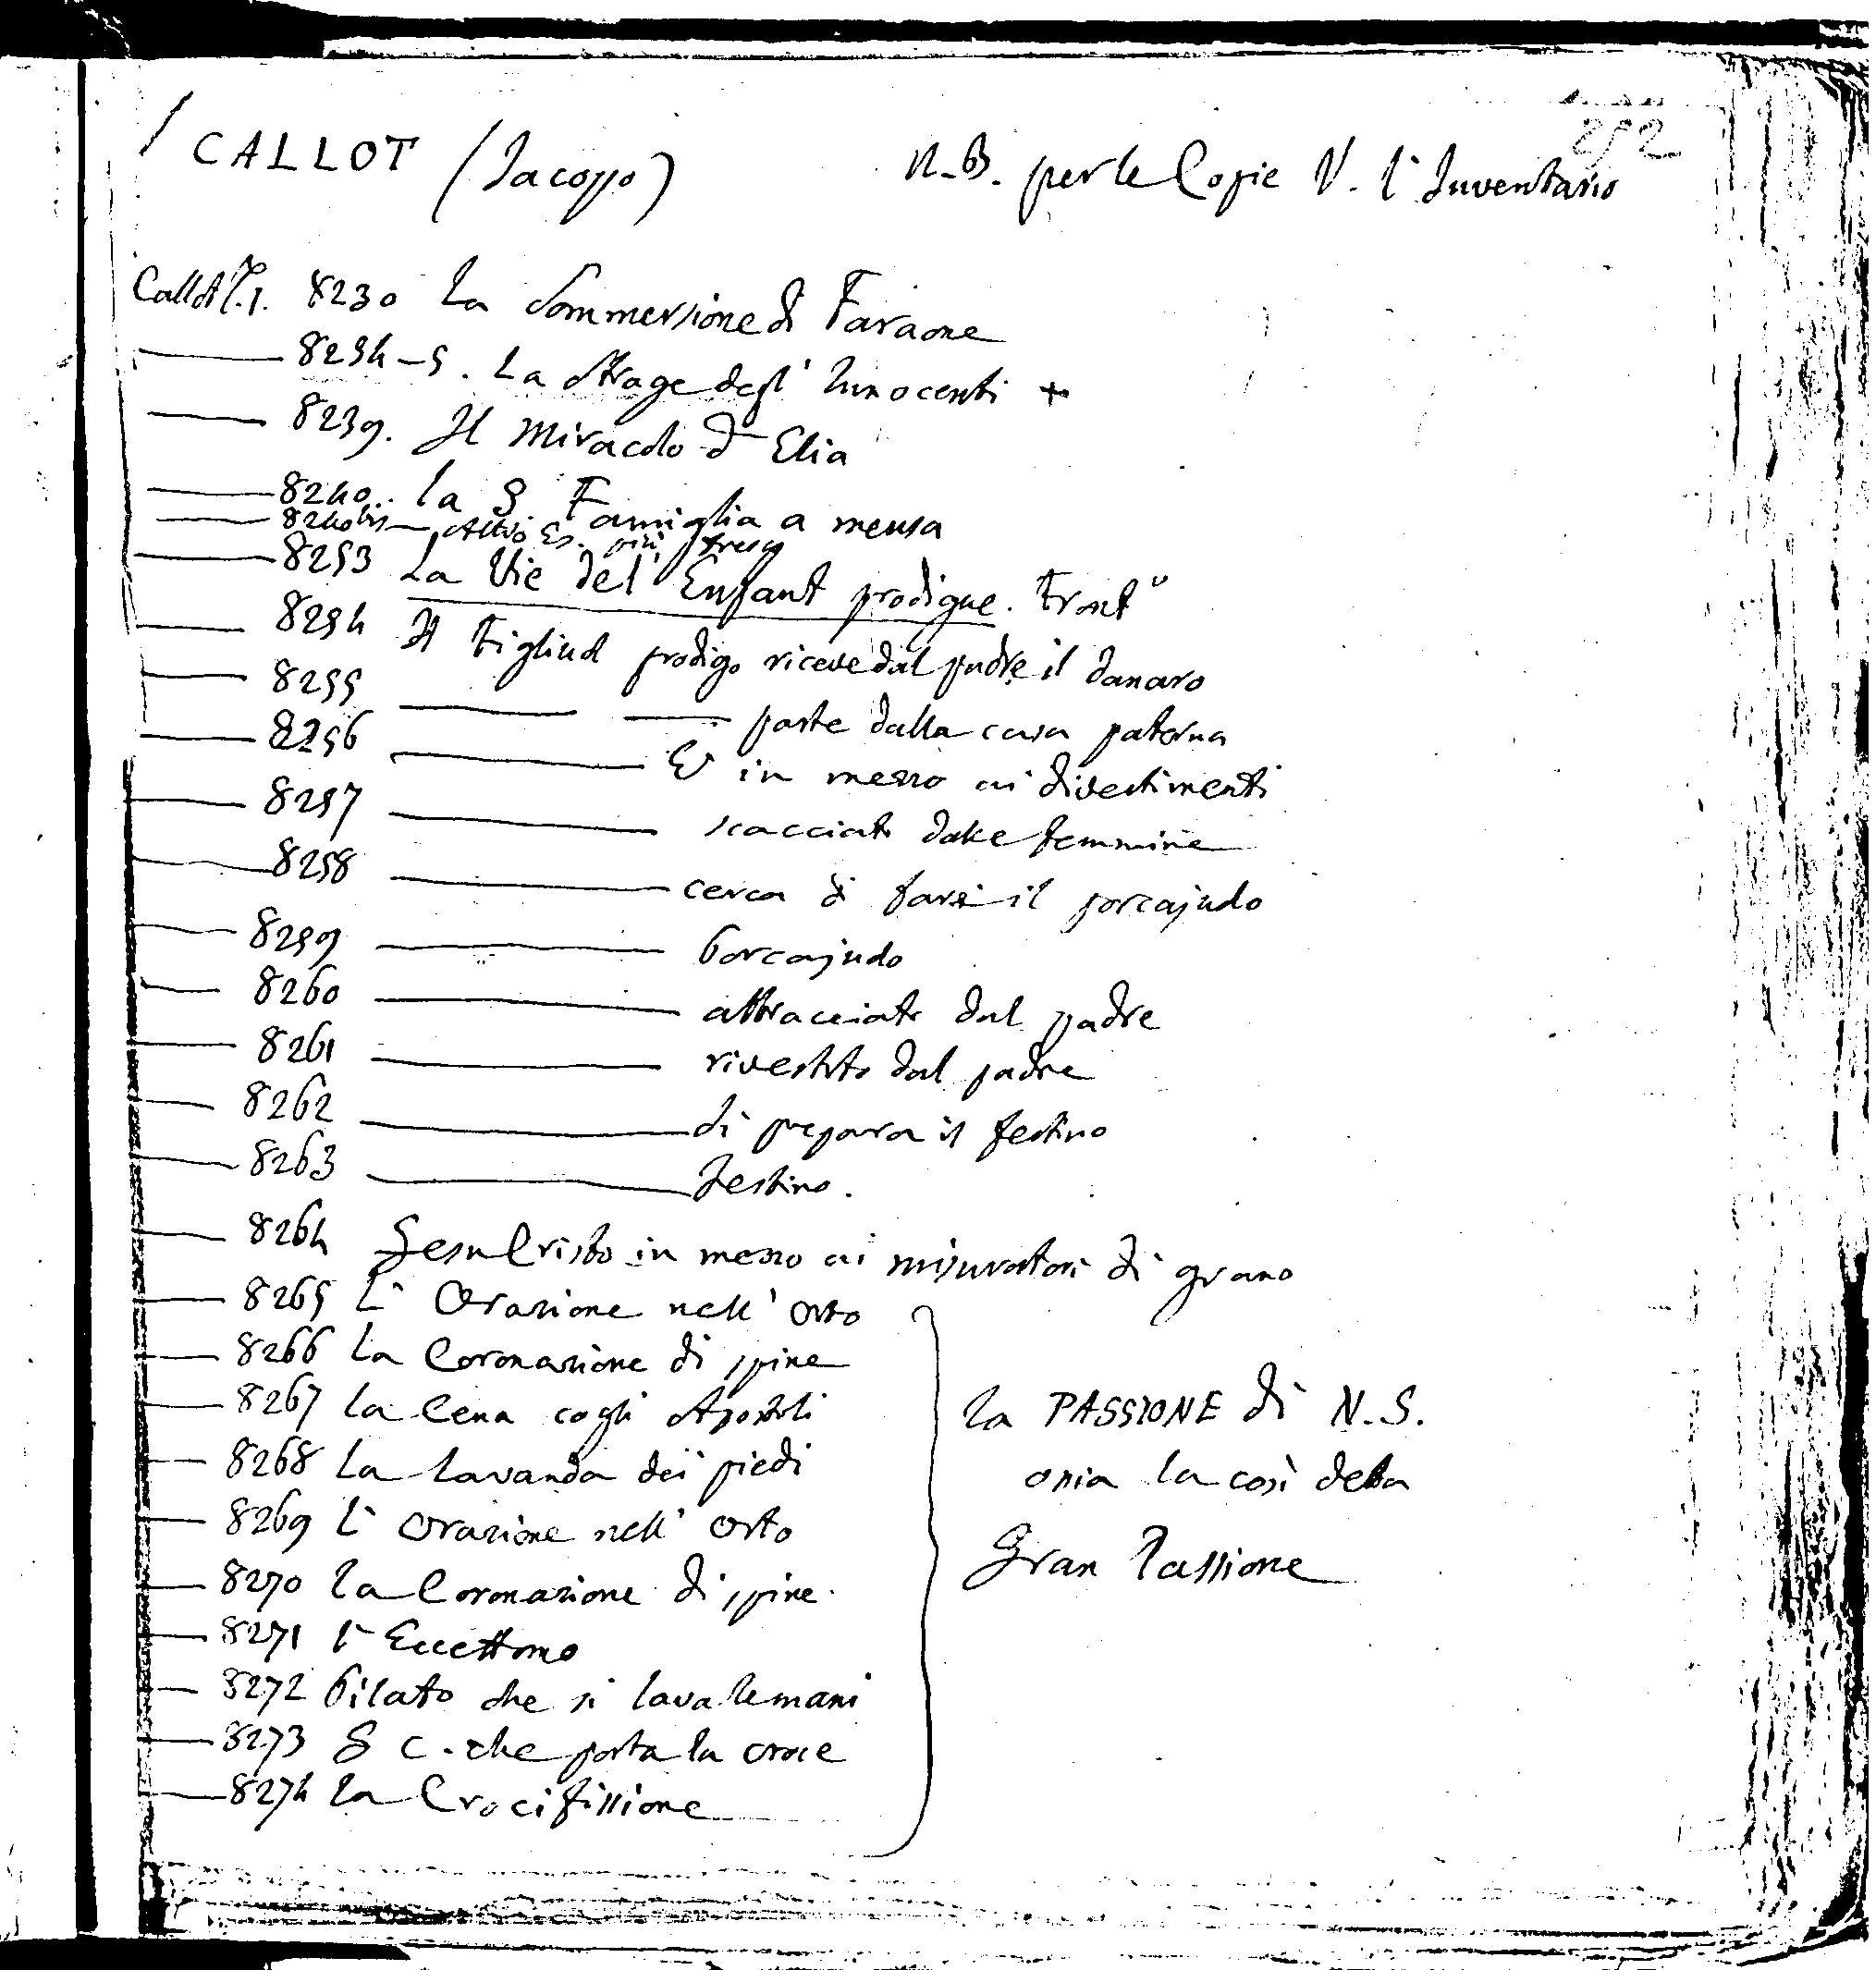 252
CALLOT (Jacopo) N.B. per le Copie V. l'Inventario
8230 La Sommersione di Faraone
8234-5. La Strage degl' Innocenti +
8239. Il Miracolo d' Elia
8240. La S. Famiglia a mensa
8240bis Altro Es. più fresco
8253 La Vie de l'Enfant prodigue. Front°
8254 Il Figliuol prodigo riceve dal padre il danaro
8255 parte dalla casa paterna
8256 È in mezzo ai divertimenti
8257 scacciato dalle femmine
8258 cerca di farsi il porcajuolo
8259 Porcajuolo
8260 abbracciato dal padre
8261 rivestito dal padre
8262 Si prepara il festino
8263 Festino.
8264 Gesu Cristo in mezzo ai misuratori di grano
8265 L' Orazione nell' Orto
8266 La Coronazione di spine
8267 La Cena cogli Apostoli
8268 La Lavanda dei piedi
8269 L' Orazione nell' Orto
8270 La Coronazione di spine.
8271 L' Eccettomo
8272 Pilato che si lava le mani
8273 G C. che porta la croce
8274 La Crocifissione
La PASSIONE di N.S.
ossia la così detta
Gran Passione